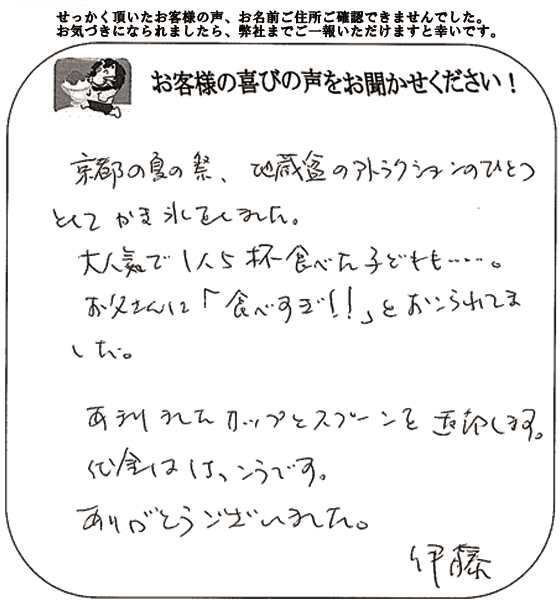 せっかく頂いたお客様の声、お名前ご住所ご確認できませんでした。
お気づきになられましたら、弊社までご一報いただけますと幸いです。
お客様の喜びの声をお聞かせください！
京都の夏の祭、地蔵盆のアトラクションのひとつ
としてかき氷をしました。
大人気で1人5杯食べた子どもも……。
お父さんに「食べすぎ!!」とおこられてま
した。
あまりましたカップとスプーンを返却します。
代金はけっこうです。
ありがとうございました。
伊藤